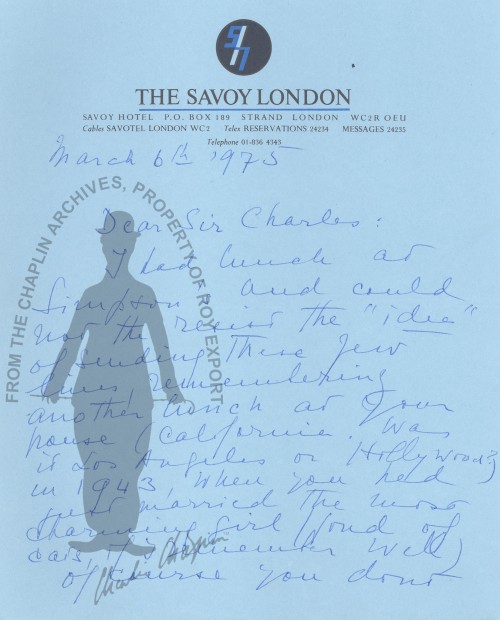 THE SAVOY LONDON
SAVOY HOTEL P.O. BOX 189 STRAND LONDON WC2R OEU
Cables SAVOTEL LONDON WC2 Telex RESERVATIONS 24234 MESSAGES 24235
Telephone 01-836 4343
March 6th 1975
Dear Sir Charles:
I had lunch at
Simpson and could
not the resist the "idea"
of sending these few
lines remembering
another lunch at your
house (California. Was
it Los Angeles or Hollywood?)
in 1943, when you had
just married the most
charming girl (fond of
cats, this I remember well)
of course you dont
FROM THE CHAPLIN ARCHIVES, PROPERTY OF ROY EXPORT
Charlie Chaplin